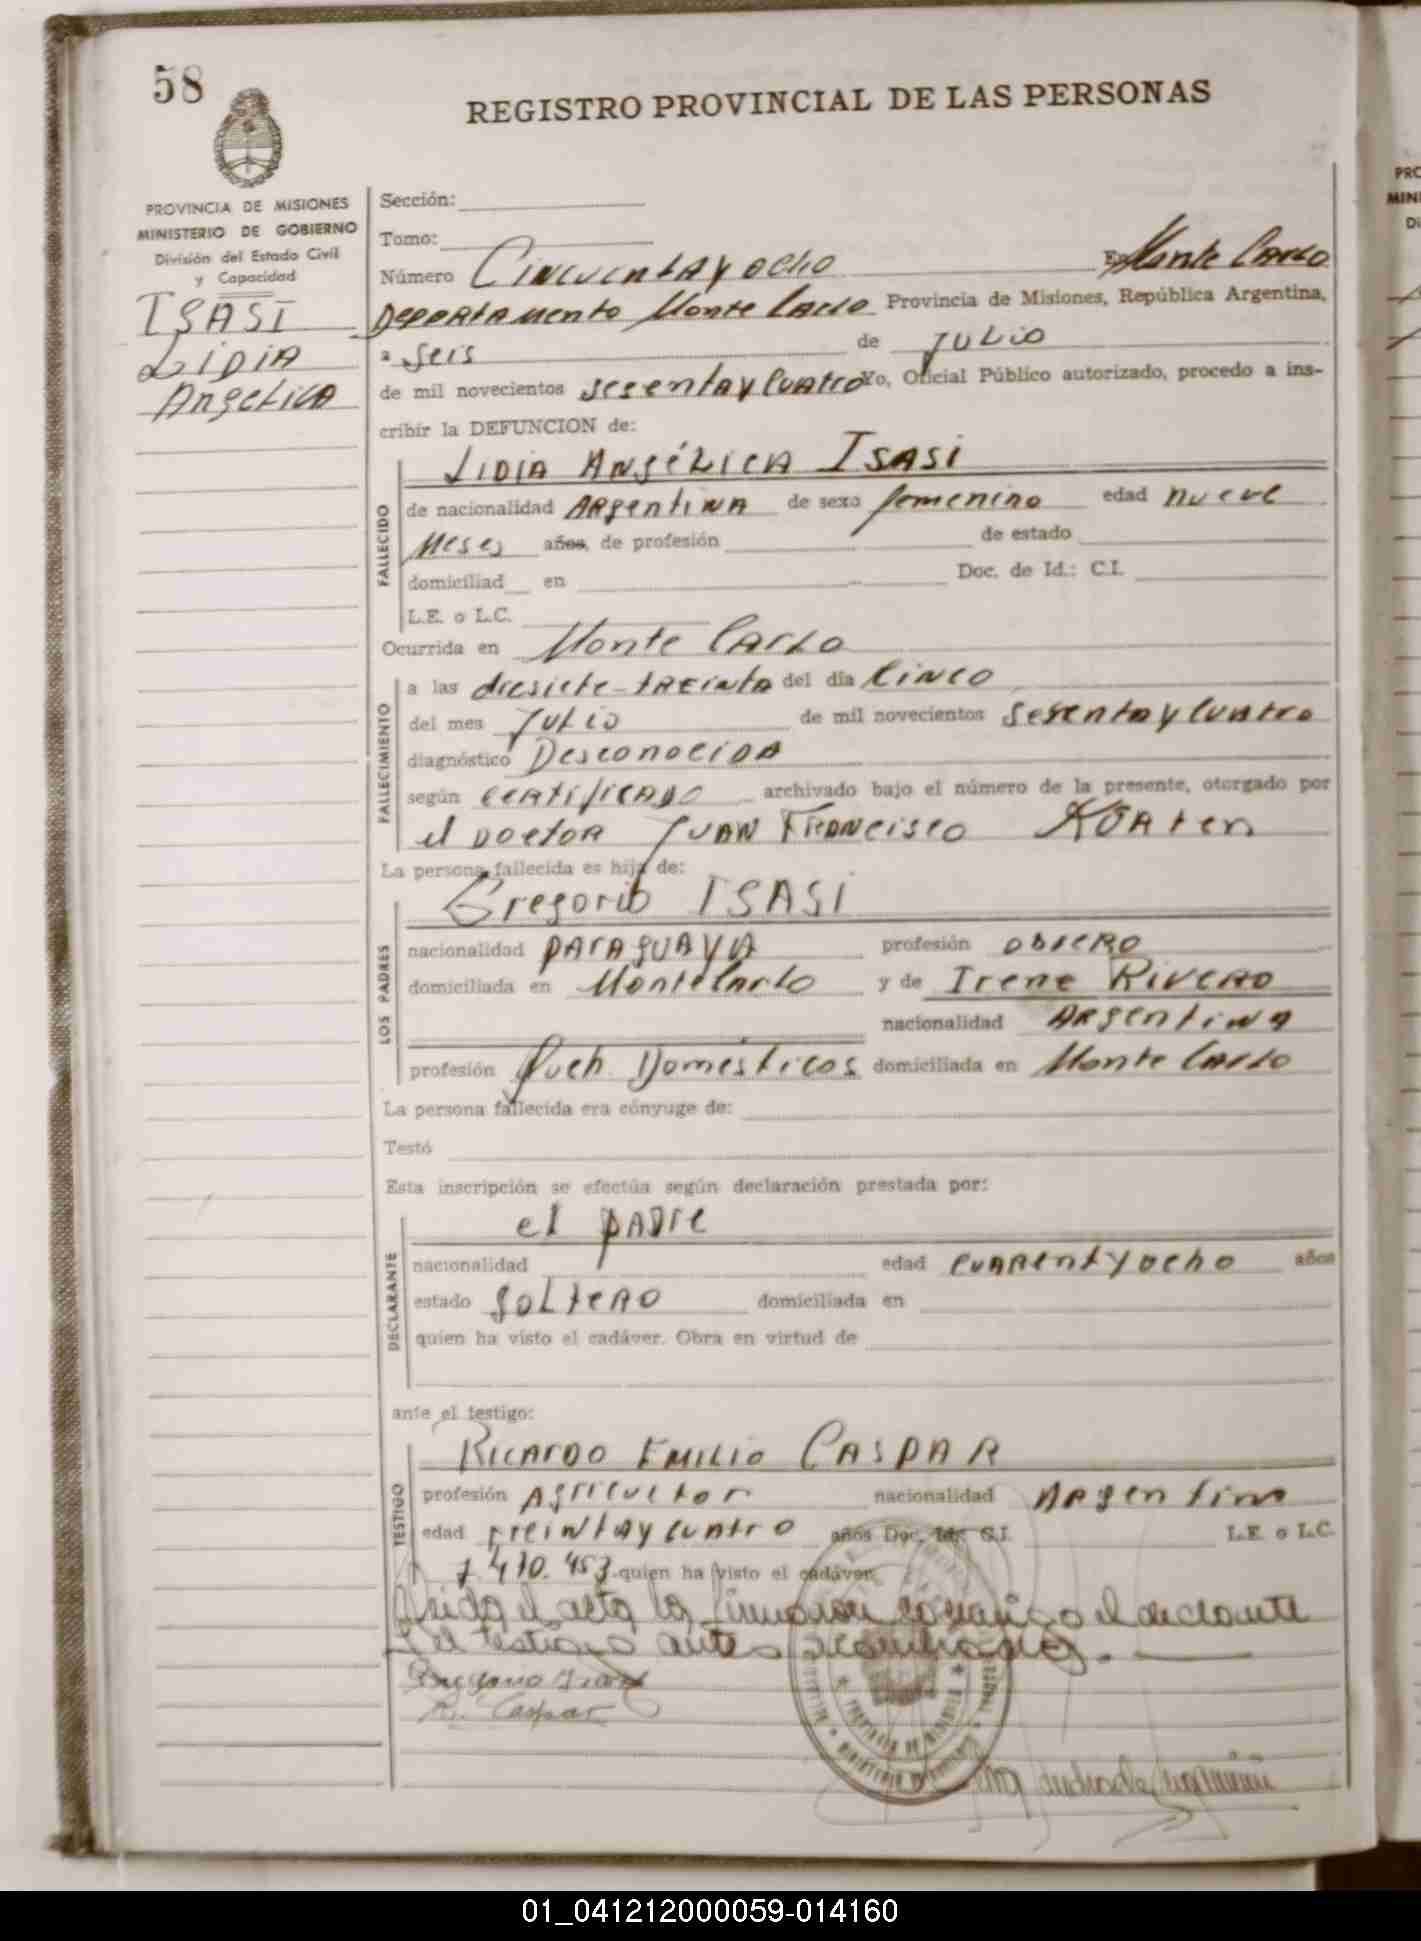 58
REGISTRO PROVINCIAL DE LAS PERSONAS
PROVINCIA DE MISIONES
MINISTERIO DE GOBIERNO
División del Estado Civil
y Capacidad
ISASI
LIDIA
Angelica
Sección:
Tomo:
Número Cincuenta y ocho En Monte Carlo
Departamento Monte Carlo Provincia de Misiones, República Argentina,
a seis de Julio
de mil novecientos sesenta y cuatro Yo, Oficial Público autorizado, procedo a ins-
cribir la DEFUNCION de:
FALLECIDO
Lidia Angélica Isasi
de nacionalidad Argentina de sexo femenino edad nueve
meses años, de profesión de estado
domiciliad en Doc. de Id.: C.I.
L.E. o L.C.
Ocurrida en Monte Carlo
FALLECIMIENTO
a las diesiete-treinta del día cinco
del mes Julio de mil novecientos sesenta y cuatro
diagnóstico Desconocida
según certificado archivado bajo el número de la presente, otorgado por
el Doctor Juan Francisco
La persona fallecida es hija de:
LOS PADRES
Gregorio ISASI
nacionalidad paraguaya profesión obrero
domiciliada en Monte Carlo y de Irene Rivero
nacionalidad Argentina
profesión Queh. Domésticos domiciliada en Monte Carlo
La persona fallecida era cónyuge de:
Testó
Esta inscripción se efectúa según declaración prestada por:
DECLARANTE
el padre
nacionalidad edad cuarentyocho años
estado soltero domiciliada en
quien ha visto el cadáver. Obra en virtud de
ante el testigo:
TESTIGO
Ricardo Emilio Caspar
profesión Agricultor nacionalidad Argentino
edad treinta y cuatro años Doc. Id.: C.I. L.E. o L.C.
7.410.453 quien ha visto el cadáver.
Leida el acta la firmaron conmigo el declarante
y el testigo antes
R. Caspar
01_041212000059-014160